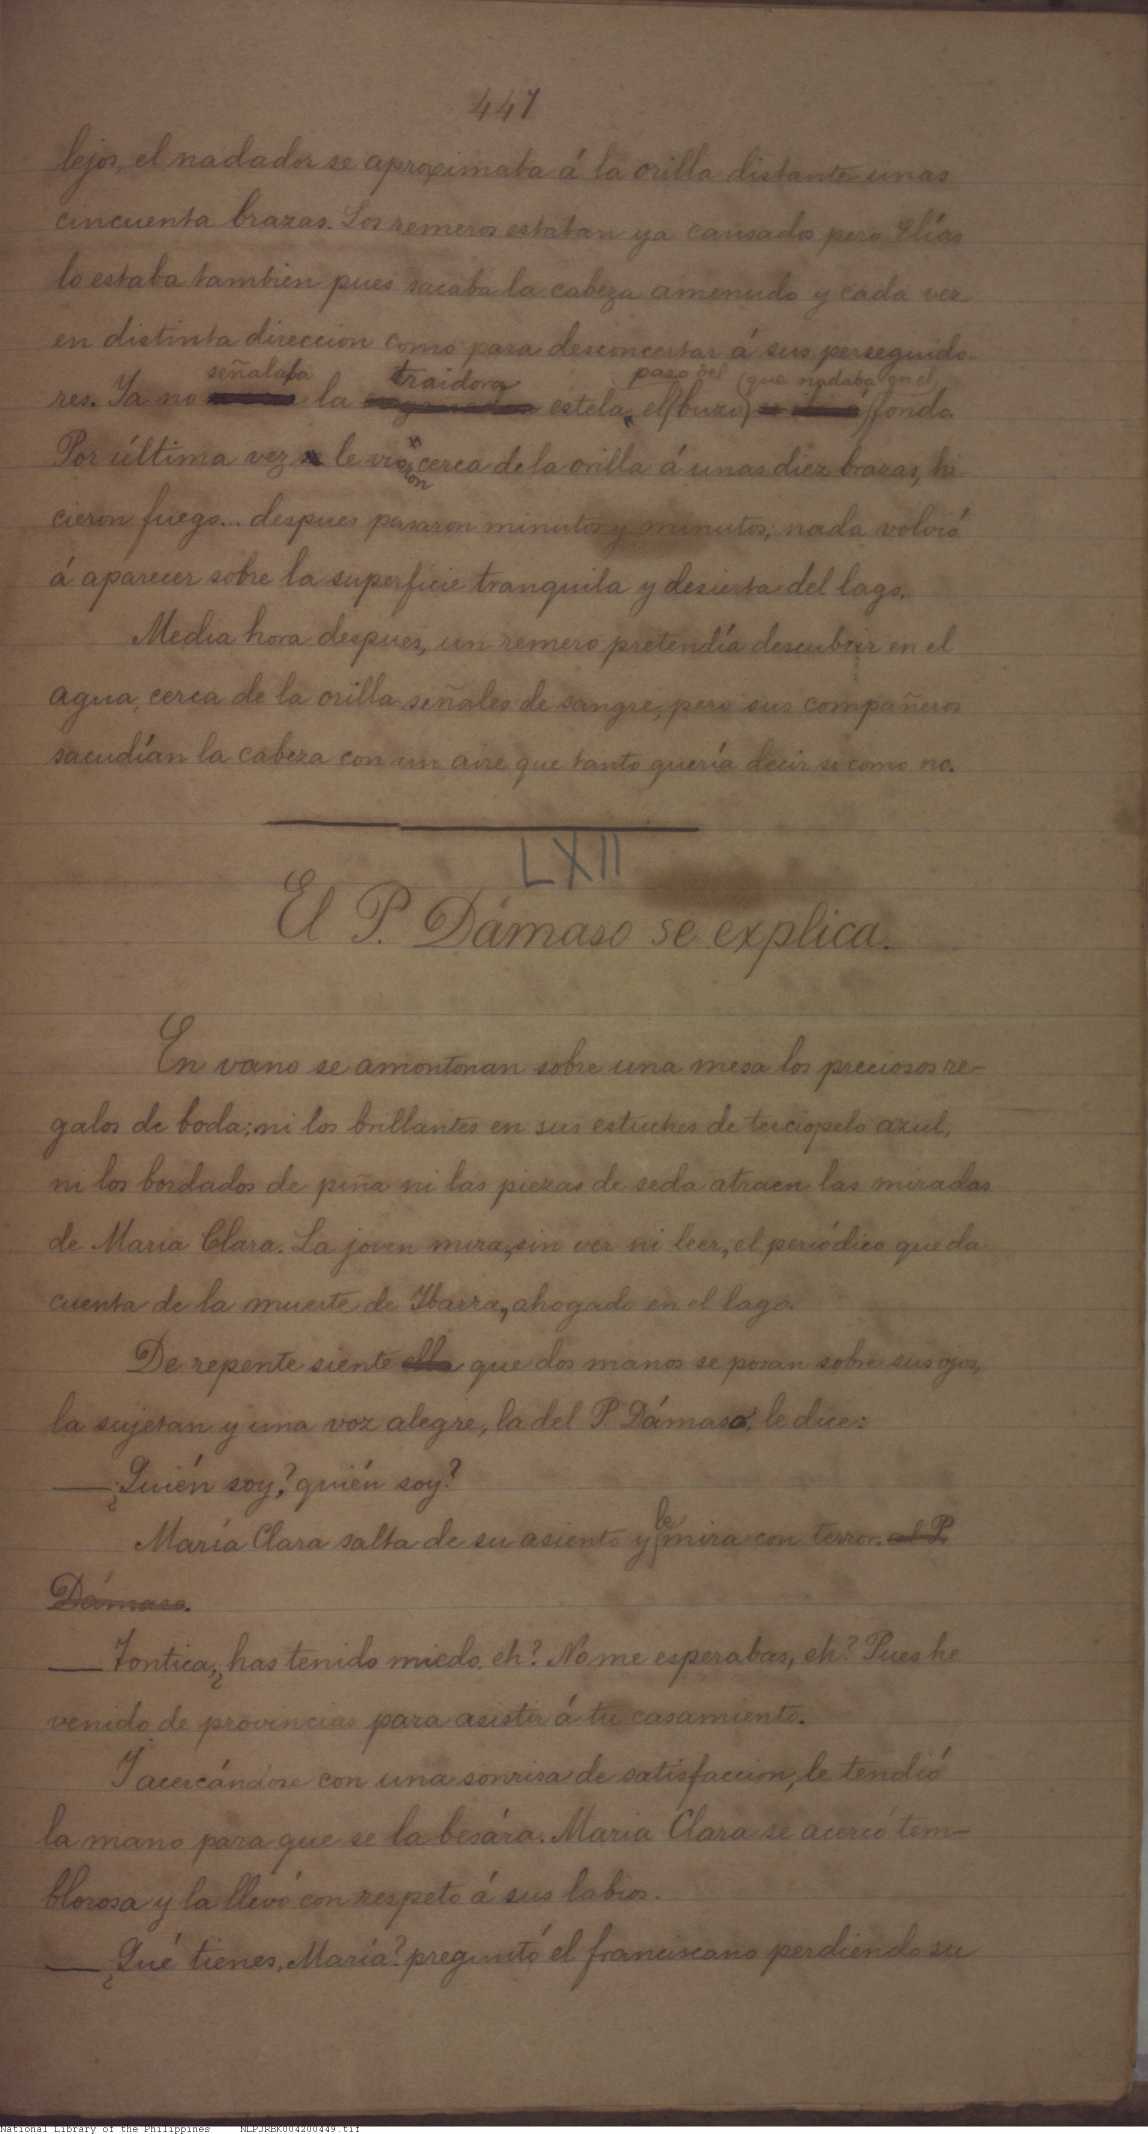 447
lejos, el nadador se aproximaba á la orilla distante unas
cincuenta brazas. Los remeros estaban ya cansados pero Elías
lo estaba tambien pues sacaba la cabeza amenudo y cada vez
en distinta direccion como para desconcertar á sus perseguido-
señalaba traidora paso del (que nadaba en el
res. Ya no la estela el buzo fondo.
Por última vez le vieron cerca de la orilla á unas diez brazas, hi
cieron fuego... despues pasaron minutos y minutos; nada volvió
á aparecer sobre la superficie tranquila y desierta del lago.
Media hora despues, un remero pretendía descubrir en el
agua, cerca de la orilla señales de sangre, pero sus compañeros
sacudían la cabeza con un aire que tanto quería decir si como no.
LXII
El P. Dámaso se explica.
En vano se amontonan sobre una mesa los preciosos re-
galos de boda; ni los brillantes en sus estuches de terciopelo azul,
ni los bordados de piña ni las piezas de seda atraen las miradas
de Maria Clara. La joven mira, sin ver ni leer, el periódico que da
cuenta de la muerte de Ibarra, ahogado en el lago.
De repente siente ella que dos manos se posan sobre sus ojos,
la sujetan y una voz alegre, la del P. Dámaso, le dice:
—¿Quién soy? quién soy?
María Clara salta de su asiento y le mira con terror. al P.
Dámaso.
—Tontica, ¿has tenido miedo, eh? No me esperabas, eh? Pues he
venido de provincias para asistir á tu casamiento.
Y acercándose con una sonrisa de satisfaccion, le tendió
la mano para que se la besára. Maria Clara se acercó tem-
blorosa y la llevó con respeto á sus labios.
—¿Qué tienes, María? preguntó el franciscano perdiendo su
National Library of the Philippines NLPJRBK004200449.tif